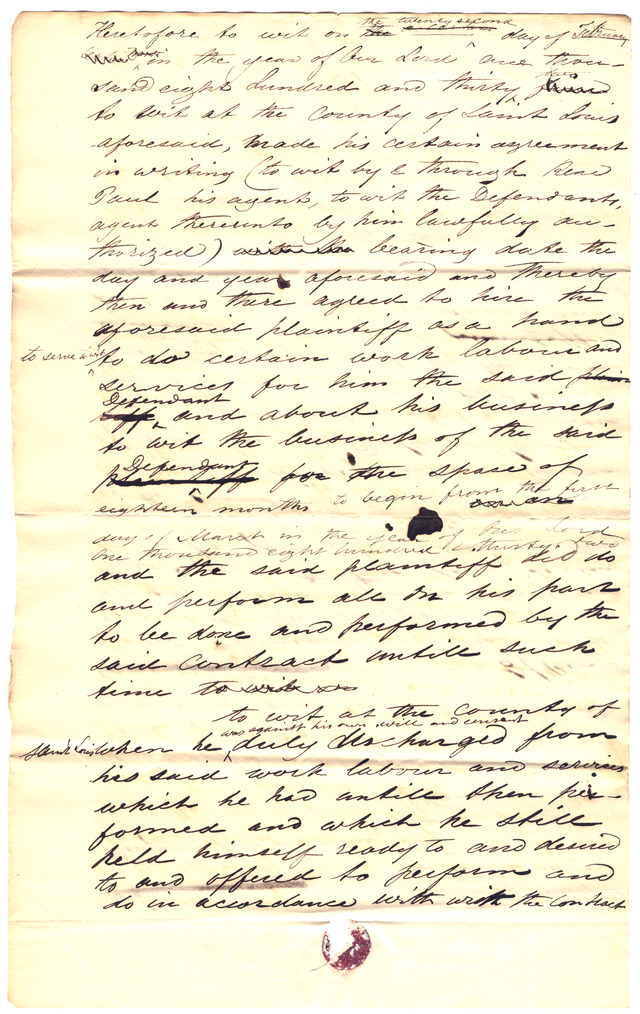 Heretofore to wit on the twenty second day of February
in the year of Our Lord one thou-
sand eight hundred and thirty two
to wit at the County of Saint Louis
aforesaid, made his certain agreement
in writing (to wit by & through Rene
Paul his agent, to wit the Defendants,
agent thereunto by him lawfully au-
thorized) bearing date the
day and year aforesaid and thereby
then and there agreed to hire the
aforesaid plaintiff as a hand
to serve & to do certain work labour and
services for him the said
Defendant and about his business
to wit the business of the said
Defendant for the space of
eighteen months to begin from the first
day of March in the year of Our Lord
One thousand eight hundred & thirty two
and the said plaintiff did do
and perform all on his part
to be done and performed by the
said contract untill such
time
to wit at the County of
was against his own will and consent
Saint Louis when he duly discharged from
his said work labour and services
which he had untill then per-
formed and which he still
held himself ready to and desired
to and offered to perform and
do in accordance with the Contract